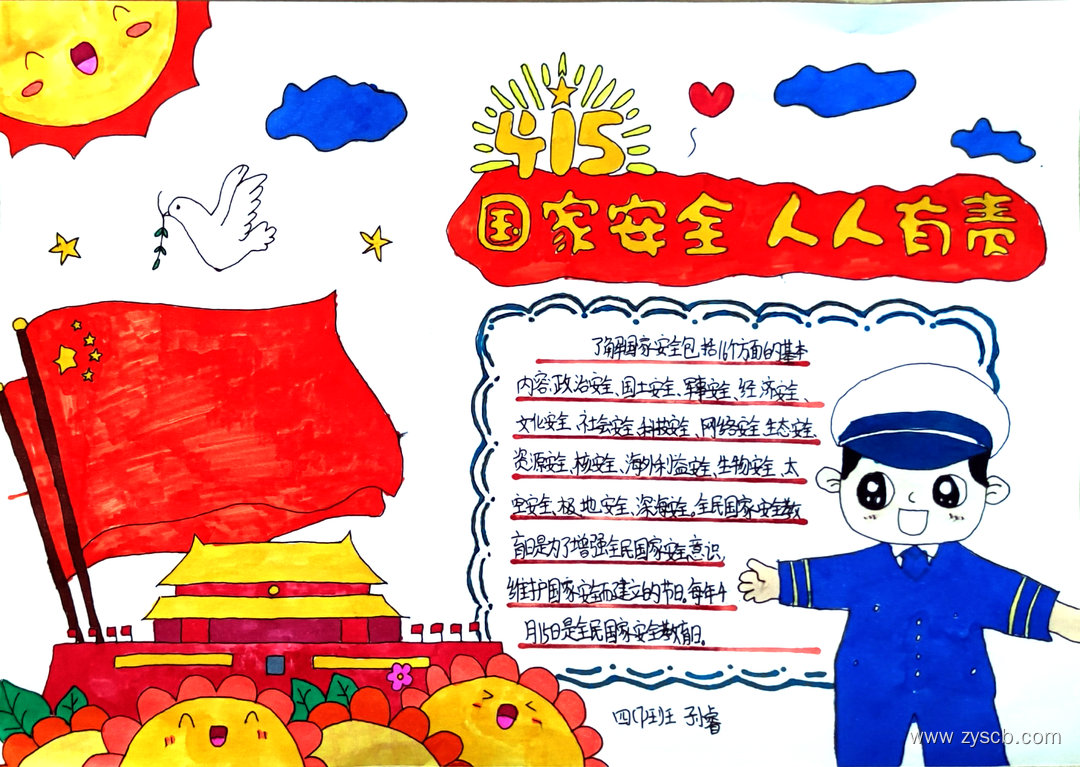 415
国家安全 人人有责
了解国家安全包括16个方面的基本
内容:政治安全、国土安全、军事安全、经济安全、
文化安全、社会安全、科技安全、网络安全、生态安全、
资源安全、核安全、海外利益安全、生物安全、太
空安全、极地安全、深海安全。全民国家安全教
育日是为了增强全民国家安全意识,
维护国家安全而建立的节日。每年4
月15日是全民国家安全教育日。
班 睿
www.zyscb.com